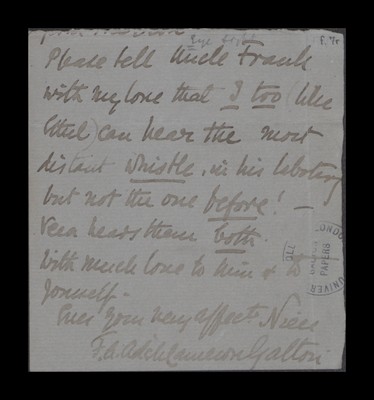 Eye Sight
Please tell Uncle Frank
with my love that I too (like
Ethel) can hear the most
distant whistle, in his labotary
but not the one before! —
Vera hears them both.
With much love to him & to
yourself.
Ever your very affect. Niece
F. A. Cameron Galton
LONDON
PAPERS
UNIVER